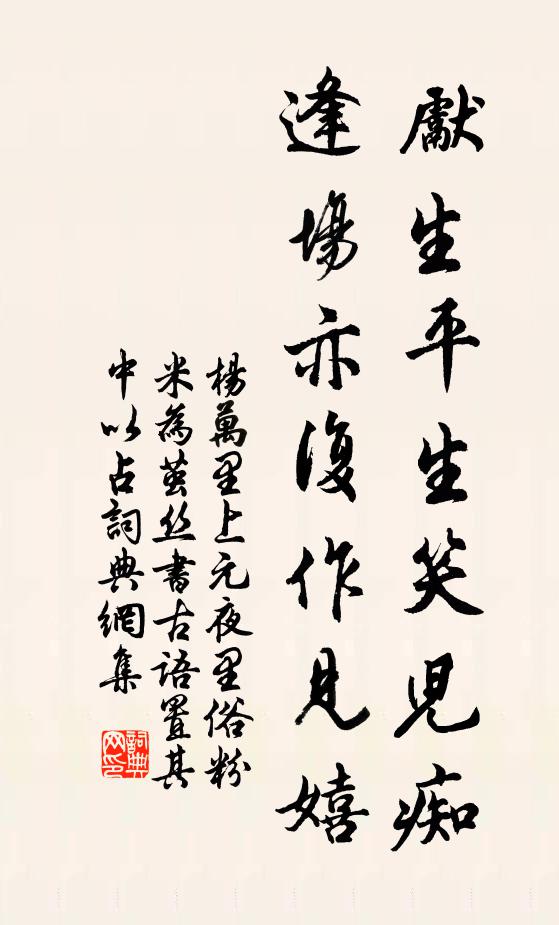 獻生平生笑兒痴
逢場亦復作見嬉
楊萬里上元夜里俗粉
米為茧丝書古語置其
中以占詞典網集
詞典
网印